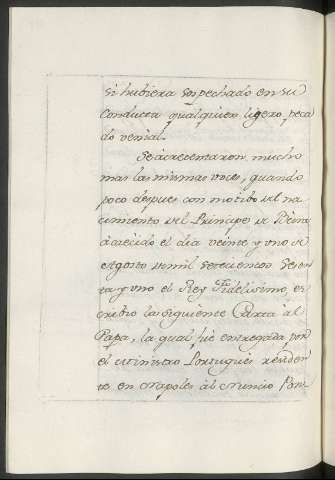 si hubiera sospechado en su
conducta qualquier ligero peca
do venial.
Se acrecentaron mucho
mas las mismas voces, quando
poco despues con motibo del na
cimiento del Principe de Beira
acaecido el dia veinte y uno de
Agosto de mil setecientos sesen
ta y uno el Rey Fidelisimo, es
cribio la siguiente Carta al
Papa, la qual fue entregada por
el Ministro Portugues residen
te en Napoles al Nuncio Pon